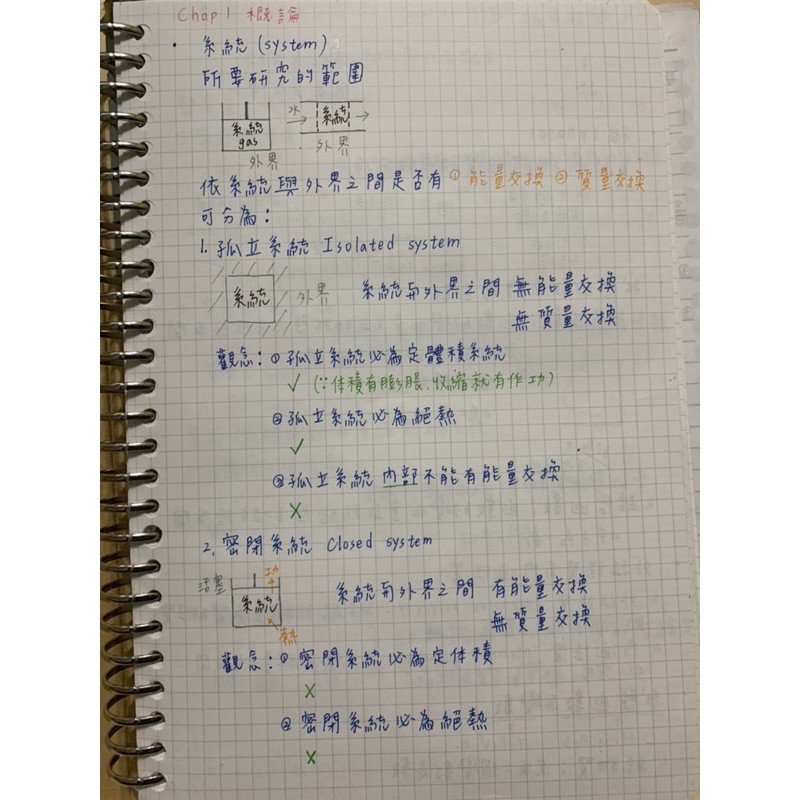 Chap 1 概論
• 系統 (system)
所要研究的範圍
系統 gas 外界
水 系統 外界
依系統與外界之間是否有 ① 能量交換 ② 質量交換
可分為：
1. 孤立系統 Isolated system
系統 外界
系統與外界之間 無能量交換
無質量交換
觀念：① 孤立系統必為定體積系統
✓ (∵体積有膨脹、收縮就有作功)
② 孤立系統必為絕熱
✓
③ 孤立系統內部不能有能量交換
×
2. 密閉系統 Closed system
活塞 功 系統 熱
系統與外界之間 有能量交換
無質量交換
觀念：① 密閉系統必為定体積
×
② 密閉系統必為絕熱
×